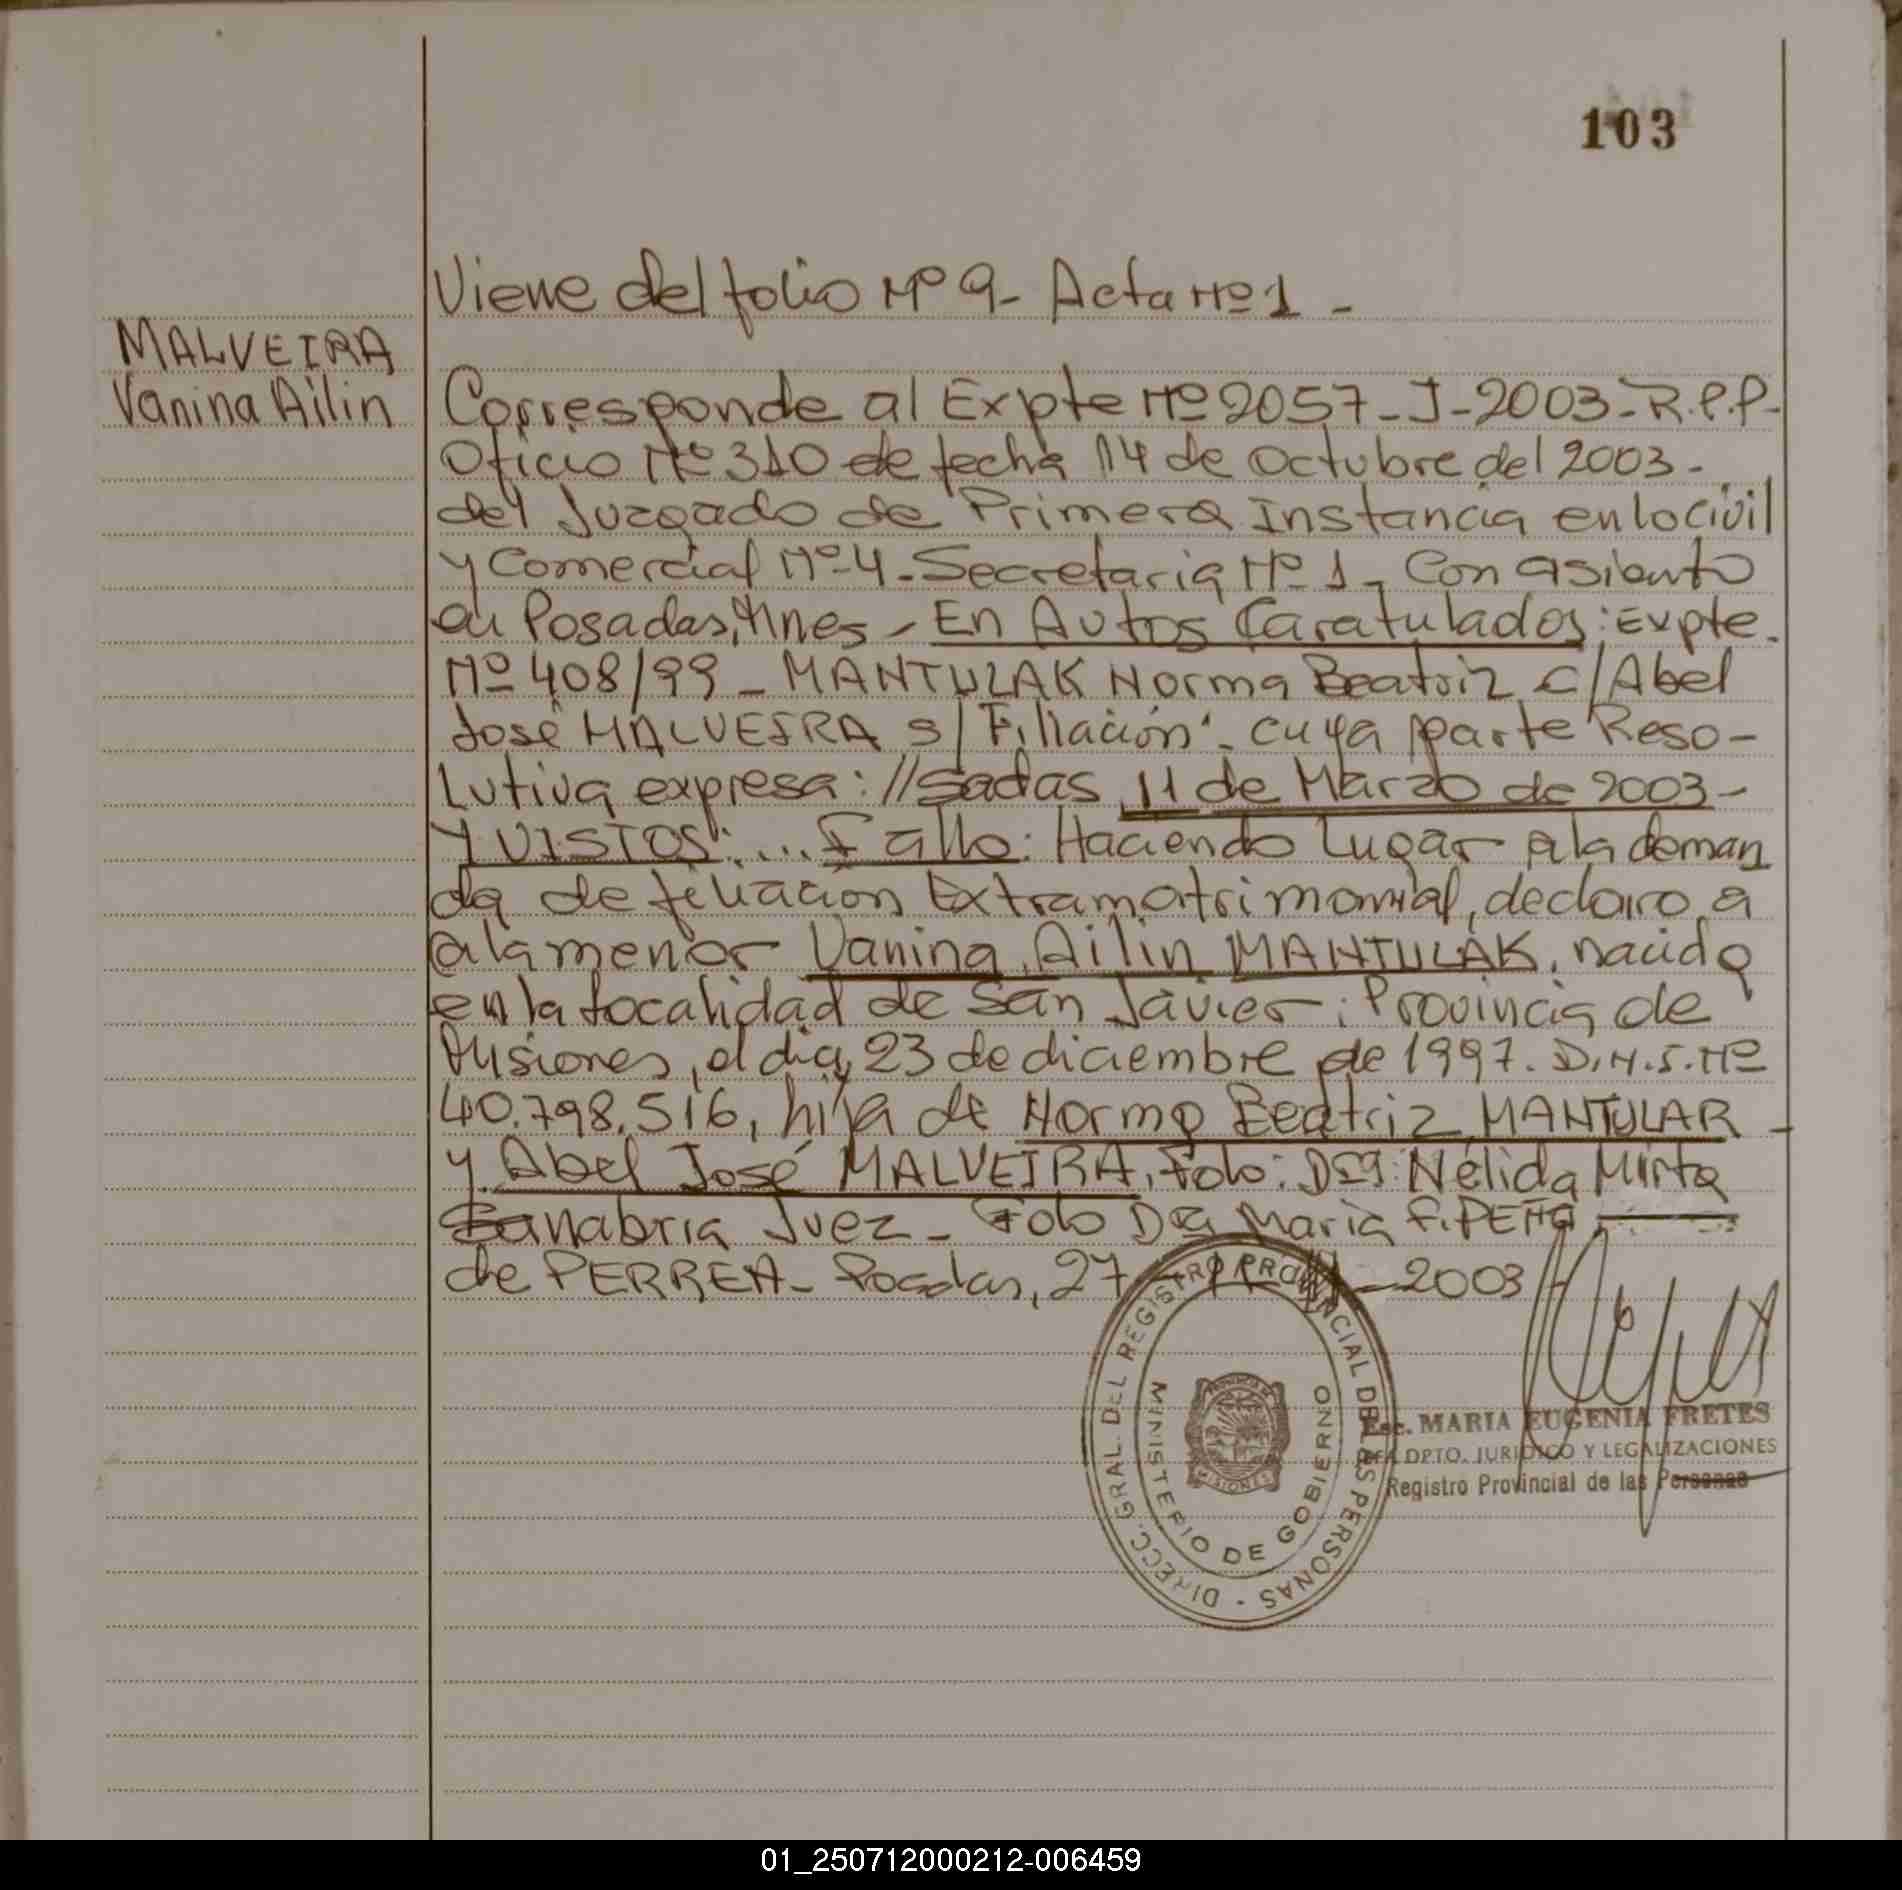 103
Viene del folio Nº 9 - Acta Nº 1 -
MALVEIRA
Vanina Ailin
Corresponde al Expte Nº 2057 - J - 2003 - R.P.P -
Oficio Nº 310 de fecha 14 de Octubre del 2003 -
del Juzgado de Primera Instancia en lo Civil
y Comercial Nº 4 - Secretaria Nº 1 - Con asiento
en Posadas, Mnes - En Autos Caratulados: Expte.
Nº 408/99 - MANTULAK Norma Beatriz c/ Abel
José MALVEIRA s/ Filiación". cuya parte Reso-
lutiva expresa: //sadas, 11 de Marzo de 2003 -
Y VISTOS: .... Fallo: Haciendo Lugar a la deman
da de filiación Extramatrimonial, declaro, a
a la menor Vanina Ailin MANTULAK, nacida
en la localidad de San Javier; Provincia de
Misiones, el dia 23 de diciembre de 1997. D.N.I. Nº
40.798.516, hija de Norma Beatriz MANTULAR -
y Abel José MALVEIRA, Fdo: Dra: Nélida Mirta
Sanabria Juez - Fdo Dra Maria F. PEÑA
de PERREA - Posadas, 27 - - 2003
DIRECC. GRAL. DEL REGISTRO PROVINCIAL DE LAS PERSONAS -
MINISTERIO DE GOBIERNO
PROVINCIA DE
MISIONES
Esc. MARIA EUGENIA FRETES
JEFA DPTO. JURIDICO Y LEGALIZACIONES
Registro Provincial de las Personas
01_250712000212-006459